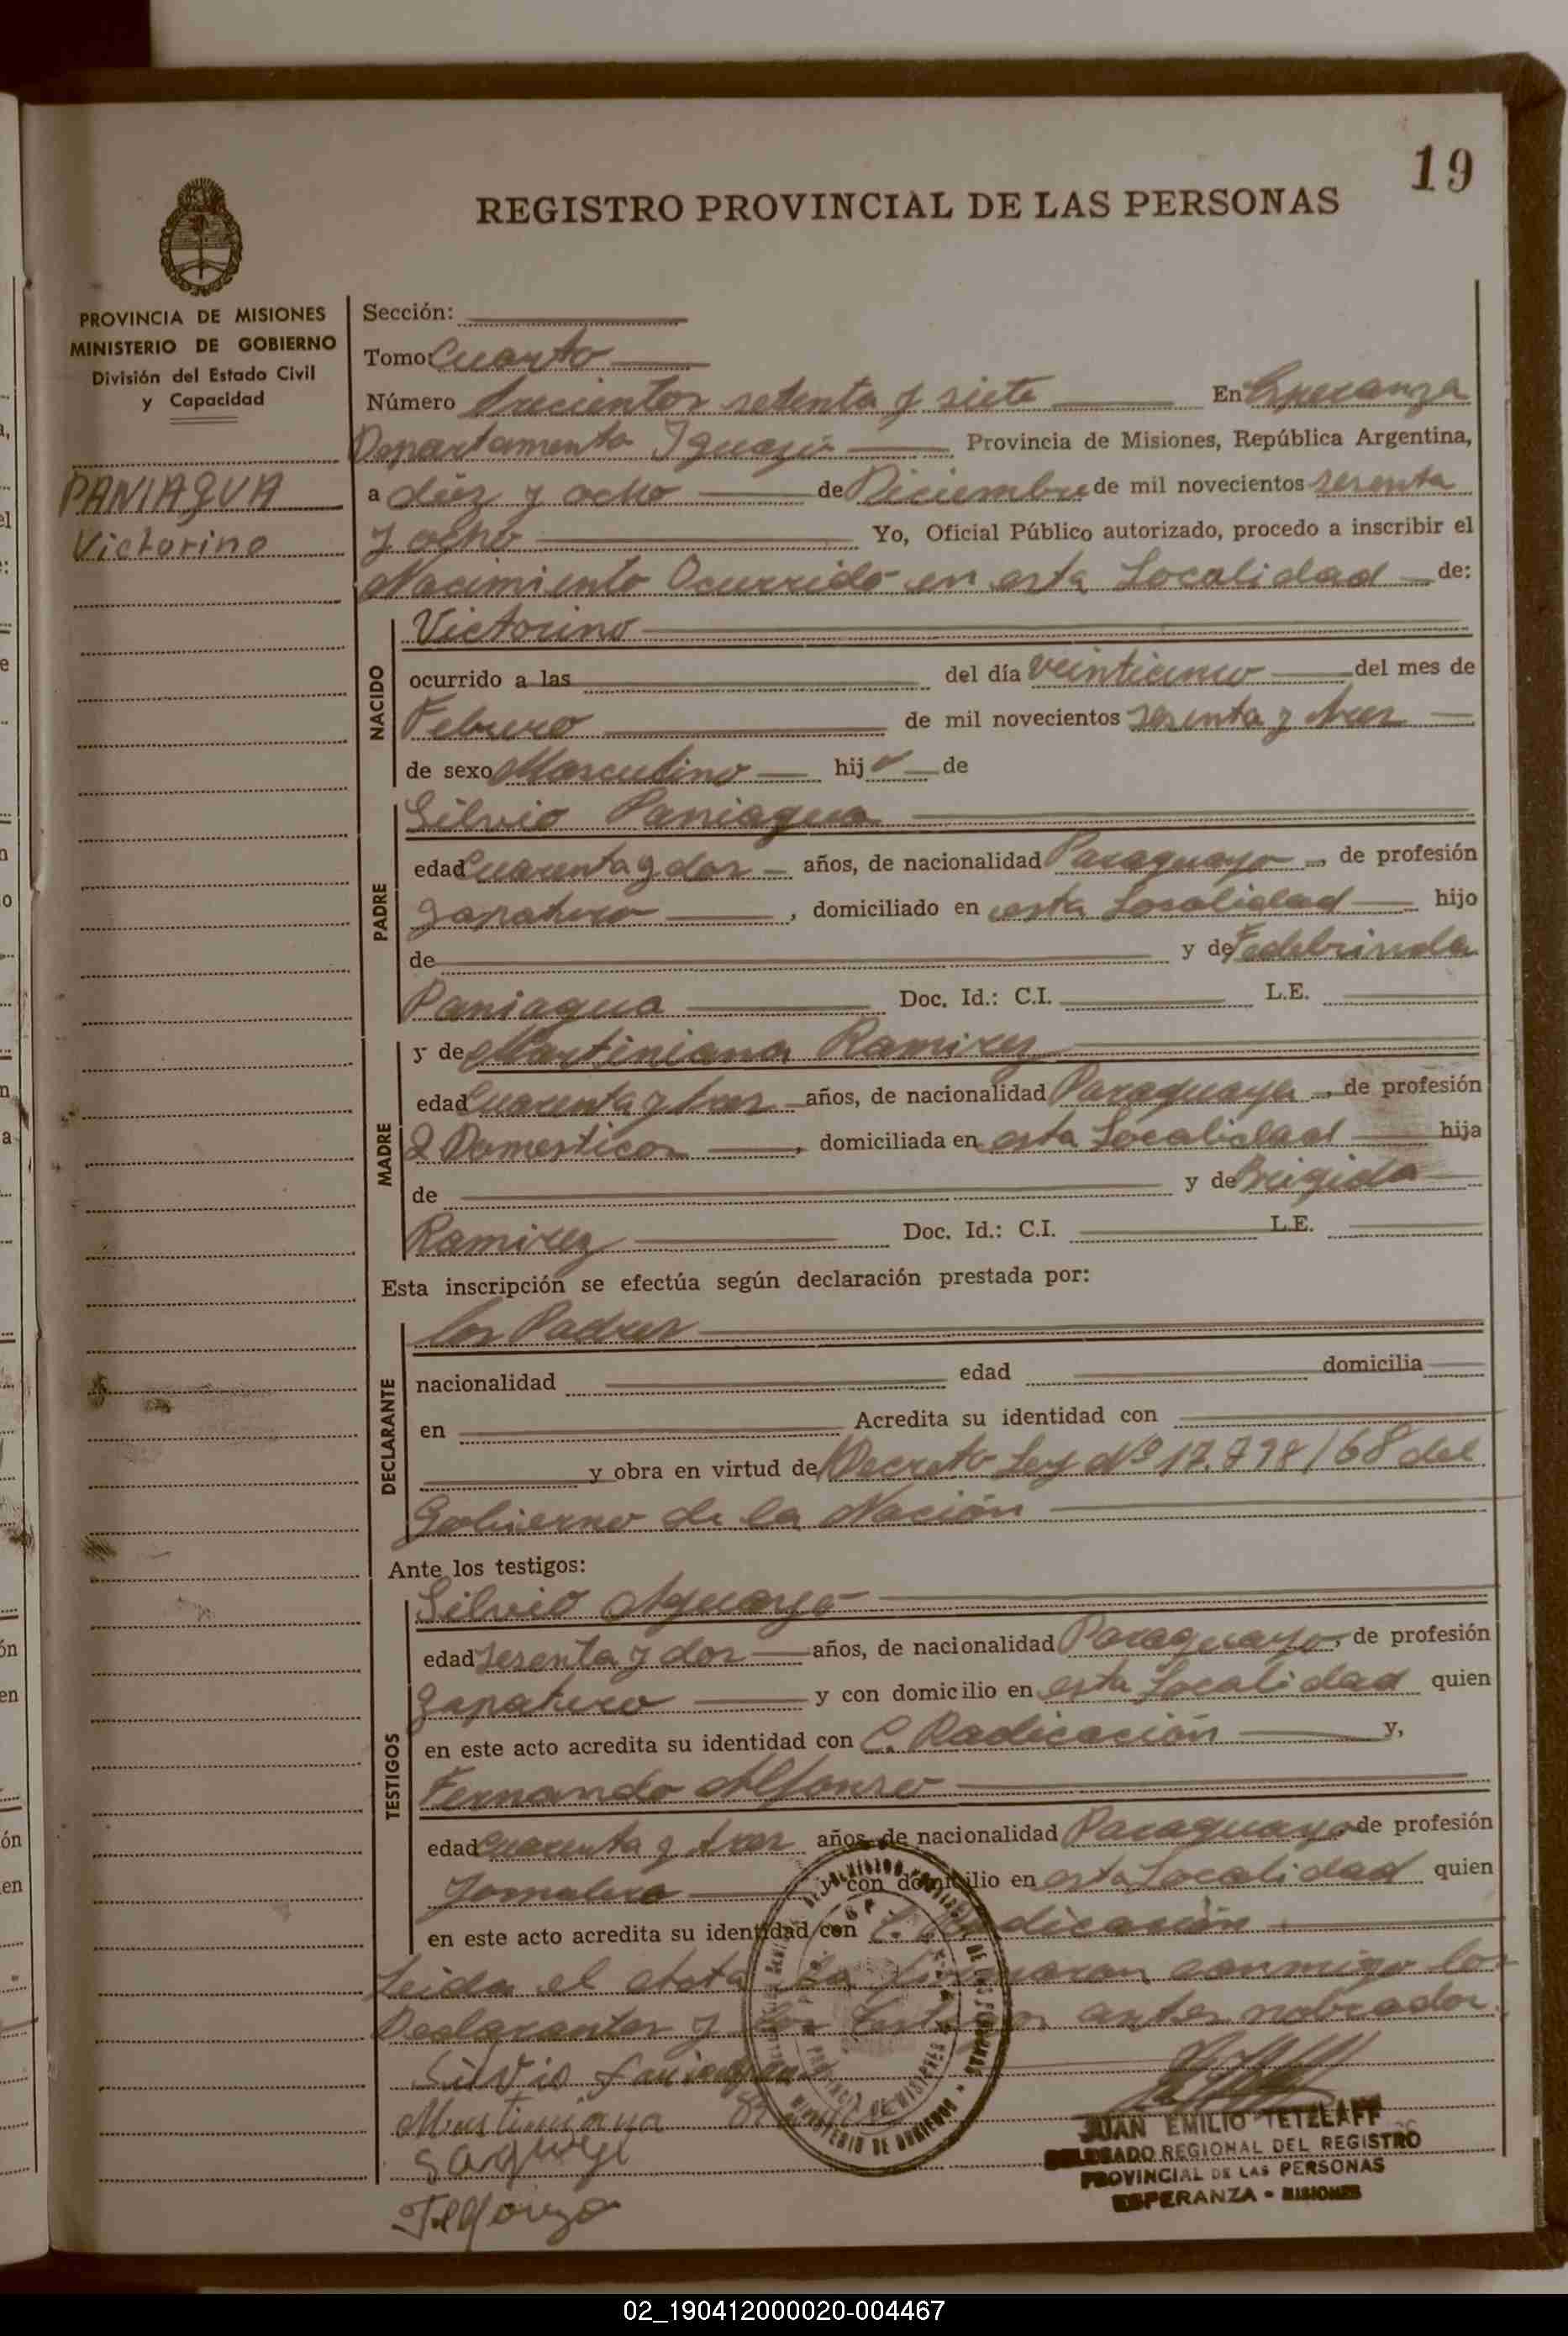 19
REGISTRO PROVINCIAL DE LAS PERSONAS
PROVINCIA DE MISIONES
MINISTERIO DE GOBIERNO
División del Estado Civil
y Capacidad
PANIAGUA
Victorino
Sección:
Tomo: Cuarto
Número Trecientos setenta y siete En Esperanza
Departamento Iguazú Provincia de Misiones, República Argentina,
a diez y ocho de Diciembre de mil novecientos sesenta
y ocho Yo, Oficial Público autorizado, procedo a inscribir el
Nacimiento Ocurrido en esta Localidad de:
NACIDO
Victorino
ocurrido a las del día veinticinco del mes de
Febrero de mil novecientos sesenta y tres
de sexo Masculino hijo de
PADRE
Silvio Paniagua
edad Cuarenta y dos años, de nacionalidad Paraguayo, de profesión
Zapatero, domiciliado en esta Localidad hijo
de y de Fedebrinda
Paniagua Doc. Id.: C.I. L.E.
MADRE
y de Martiniana Ramirez
edad Cuarenta y tres años, de nacionalidad Paraguaya, de profesión
Q Domesticos, domiciliada en esta Localidad hija
de y de Brigida
Ramirez Doc. Id.: C.I. L.E.
Esta inscripción se efectúa según declaración prestada por:
DECLARANTE
los Padres
nacionalidad edad domicilia
en Acredita su identidad con
y obra en virtud de Decreto Ley Nº 17.798/68 del
Gobierno de la Nación
Ante los testigos:
TESTIGOS
Silvio Aguayo
edad sesenta y dos años, de nacionalidad Paraguayo, de profesión
Zapatero y con domicilio en esta Localidad quien
en este acto acredita su identidad con C. Radicación y,
Fernando Alfonso
edad Cuarenta y tres años, de nacionalidad Paraguayo de profesión
Jornalero y con domicilio en esta Localidad quien
en este acto acredita su identidad con C. Radicación
Leida el Acta la firmaron conmigo los
Declarantes y los Testigos antes nobrados.
Silvio Paniagua
Martiniana
JUAN EMILIO TETZLAFF
DELEGADO REGIONAL DEL REGISTRO
PROVINCIAL DE LAS PERSONAS
ESPERANZA - MISIONES
02_190412000020-004467